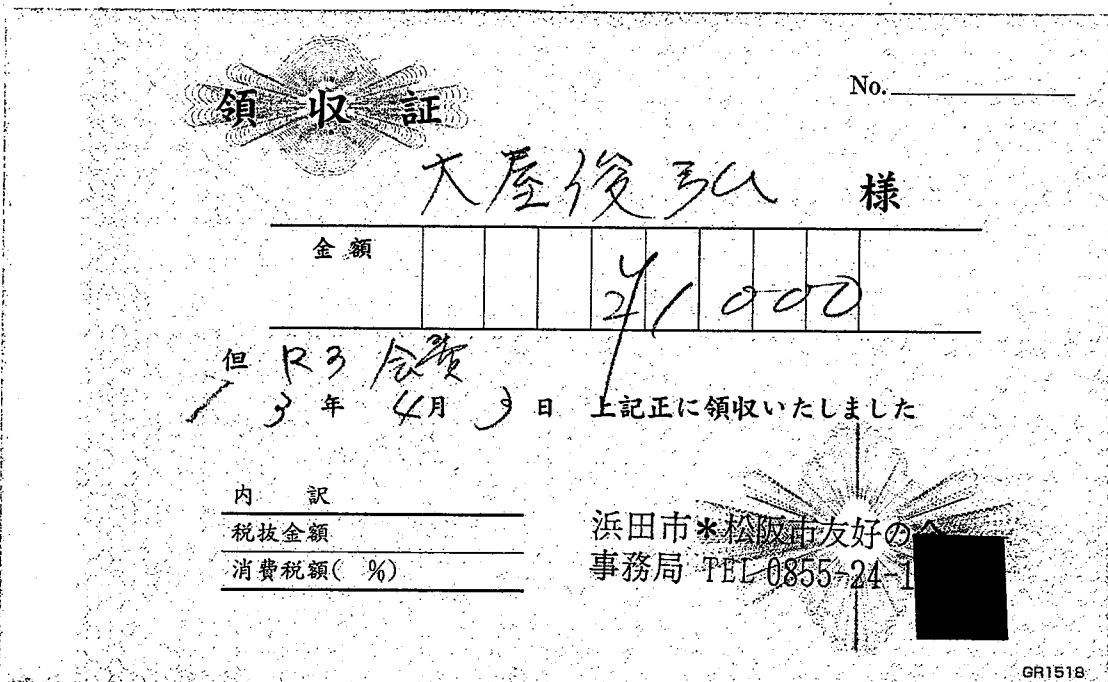 領収証
No.
大屋俊弘 様
金額 ¥1000
但 R3 会費
3年 4月 3日 上記正に領収いたしました
内訳
税抜金額
消費税額( %)
浜田市*松阪市友好の会
事務局 TEL 0855-24-1
GR1518